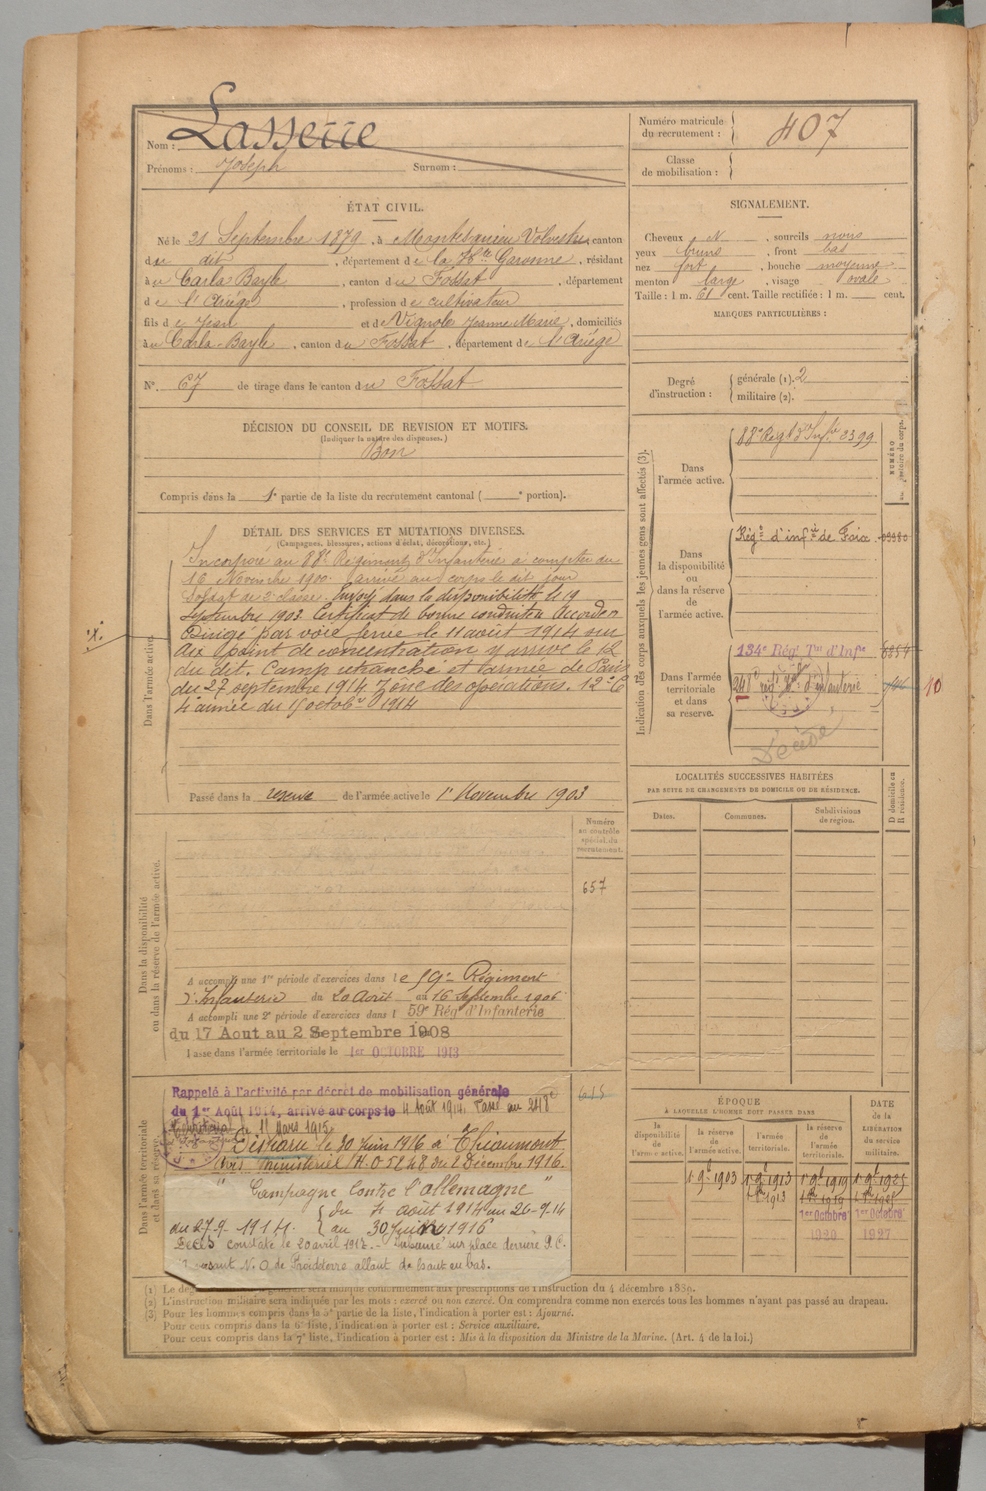 Nom : Lasserre
Prénoms : Joseph Surnom :
Numéro matricule du recrutement : 407
Classe de mobilisation :
ÉTAT CIVIL.
Né le 21 Septembre 1879, à Montesquieu Volvestre, canton
du dit, département de la Hte Garonne, résidant
à u Carla Bayle, canton du Fossat, département
de l'Ariège, profession de cultivateur
fils de Jean et de Vignoles Jeanne Marie, domiciliés
à u Carla-Bayle, canton du Fossat, département de l'Ariège
N° 67 de tirage dans le canton du Fossat
DÉCISION DU CONSEIL DE REVISION ET MOTIFS.
(Indiquer la nature des dispenses.)
Bon
Compris dans la 1e partie de la liste du recrutement cantonal ( e portion).
SIGNALEMENT.
Cheveux N, sourcils noirs
yeux bruns, front bas
nez fort, bouche moyenne
menton large, visage ovale
Taille : 1 m. 61 cent. Taille rectifiée : 1 m. cent.
MARQUES PARTICULIÈRES :
Degré d'instruction : générale (1). 2
militaire (2).
DÉTAIL DES SERVICES ET MUTATIONS DIVERSES.
(Campagnes, blessures, actions d'éclat, décorations, etc.)
Dans l'armée active.
Incorporé au 88e Régiment d'Infanterie à compter du
16 Novembre 1900. arrivé au corps le dit jour
Soldat de 2e classe. Envoyé dans la disponibilité le 19
septembre 1903. Certificat de bonne conduite Accordé
Dirigé par voie ferrée le 11 août 1914 sur
Aix point de concentration y arrivé le 12
du dit. Camp retranché et l'armée de Paris
du 27 septembre 1914 Zône des opérations. 12e C
4e armée du 15 octobre 1914
Passé dans la réserve de l'armée active le 1er Novembre 1903
Indication des corps auxquels les jeunes gens sont affectés (3).
NUMÉRO au répertoire du corps.
Dans l'armée active.
88e Régt d'Infie 2399
Dans la disponibilité ou dans la réserve de l'armée active.
Régt d'infie de Foix. 09980
Dans l'armée territoriale et dans sa réserve.
134e Régt Tal d'Infie 6854
248e régt d'infanterie 10
Décédé
LOCALITÉS SUCCESSIVES HABITÉES
PAR SUITE DE CHANGEMENTS DE DOMICILE OU DE RÉSIDENCE.
Dates. Communes. Subdivisions de région.
D domicile ou R résidence.
Dans la disponibilité ou dans la réserve de l'armée active.
Numéro au contrôle spécial du recrutement.
657
A accompli une 1re période d'exercices dans le 59e Régiment
d'Infanterie du 20 Août au 16 Septembre 1906
A accompli une 2e période d'exercices dans l 59e Régt d'Infanterie
du 17 Aout au 2 Septembre 1908
Passé dans l'armée territoriale le 1er OCTOBRE 1913
Dans l'armée territoriale et dans sa réserve.
Rappelé à l'activité par décret de mobilisation générale
du 1er Août 1914, arrivé au corps le 4 Août 1914. Passé au 248e
Territorial le 11 Mars 1915
Disparu le 30 juin 1916 à Thiaumont
Avis ministériel H.O 5848 du 2 Décembre 1916.
" Campagne contre l'allemagne "
du 4 août 1914 au 26-9-14
du 27-9-1914. au 30 Juin 1916
Décès constaté le 20 avril 1917.- Inhumé sur place derrière P.C.
N.O de Froideterre allant de haut en bas.
ÉPOQUE
À LAQUELLE L'HOMME DOIT PASSER DANS
la disponibilité de l'armée active. la réserve de l'armée active. l'armée territoriale. la réserve de l'armée territoriale.
DATE de la LIBÉRATION du service militaire.
1er 9bre 1903 1er 9bre 1913 1er 9bre 1919 1er 9bre 1925
1er Octobre 1920 1er Octobre 1927
(2) L'instruction militaire sera indiquée par les mots : exercé ou non exercé. On comprendra comme non exercés tous les hommes n'ayant pas passé au drapeau.
(3) Pour les hommes compris dans la 5e partie de la liste, l'indication à porter est : Ajourné.
Pour ceux compris dans la 6e liste, l'indication à porter est : Service auxiliaire.
Pour ceux compris dans la 7e liste, l'indication à porter est : Mis à la disposition du Ministre de la Marine. (Art. 4 de la loi.)